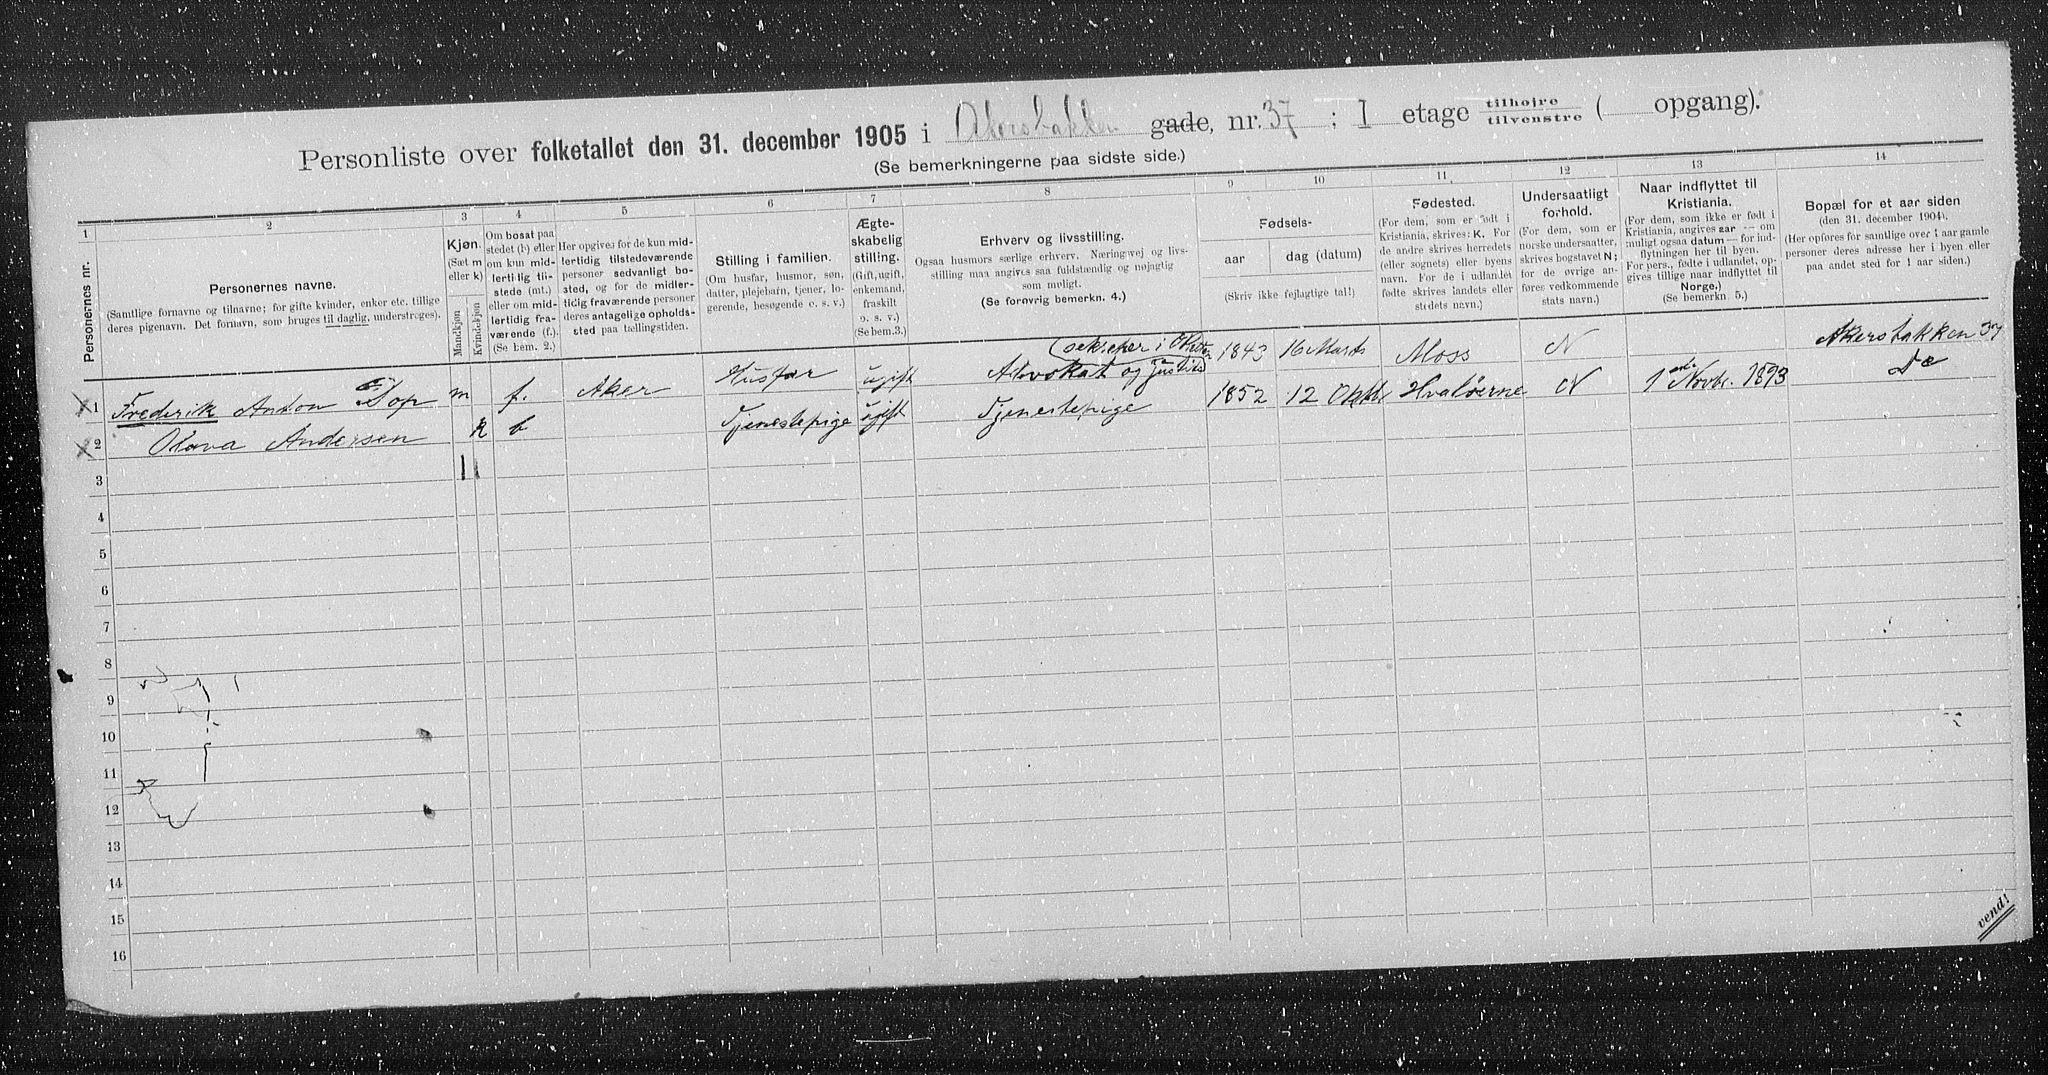 Personliste over folketallet den 31. december 1905 i Akersbakken gade, nr. 37 ; I etage tilhøjre / tilvenstre ( opgang).
(Se bemerkningerne paa sidste side.)
1 2 3 4 5 6 7 8 9 10 11 12 13 14
Personernes nr.
Personernes navne.
(Samtlige fornavne og tilnavne; for gifte kvinder, enker etc. tillige
deres pigenavn. Det fornavn, som bruges til daglig, understreges).
Kjøn.
(Sæt m
eller k)
Mandkjøn
Kvindekjøn
Om bosat paa
stedet (b) eller
om kun mid-
lertidig til-
stede (mt.)
eller om mid-
lertidig fra-
værende (f.).
(Se bem. 2.)
Her opgives for de kun mid-
lertidig tilstedeværende
personer sedvanligt bo-
sted, og for de midler-
tidig fraværende personer
deres antagelige opholds-
sted paa tællingstiden.
Stilling i familien.
(Om husfar, husmor, søn,
datter, plejebarn, tjener, lo-
gerende, besøgende o. s. v.)
Ægte-
skabelig
stilling.
(Gift, ugift,
enkemand,
fraskilt
o. s. v.)
(Se bem. 3.)
Erhverv og livsstilling.
Ogsaa husmors særlige erhverv. Næringsvej og livs-
stilling maa angives saa fuldstændig og nøjagtig
som muligt.
(Se forøvrig bemerkn. 4.)
Fødsels-
aar
dag (datum)
(Skriv ikke fejlagtige tal!)
Fødested.
(For dem, som er født i
Kristiania, skrives: K. For
de andre skrives herredets
(eller sognets) eller byens
navn. For de i udlandet
fødte skrives landets eller
stedets navn.)
Undersaatligt
forhold.
(For dem, som er
norske undersaatter,
skrives bogstavet N;
for de øvrige an-
føres vedkommende
stats navn.)
Naar indflyttet til
Kristiania.
(For dem, som ikke er født i
Kristiania, angives aar — om
muligt ogsaa datum — for ind-
flytningen her til byen.
For pers., fødte i udlandet, op-
gives tillige naar indflyttet til
Norge.)
(Se bemerkn. 5.)
Bopæl for et aar siden
(den 31. december 1904).
(Her opføres for samtlige over 1 aar gamle
personer deres adresse her i byen eller
paa andet sted for 1 aar siden.)
1 Frederik Anton m f. Aker Husfar ugift Advokat og 1843 16 Marts Moss N Akersbakken 37
2 Olava Andersen k b Tjenestepige ugift Tjenestepige 1852 12 Hvaløerne N 1 Novbr. 1893 Do
3
4
5
6
7
8
9
10
11
12
13
14
15
16
vend!